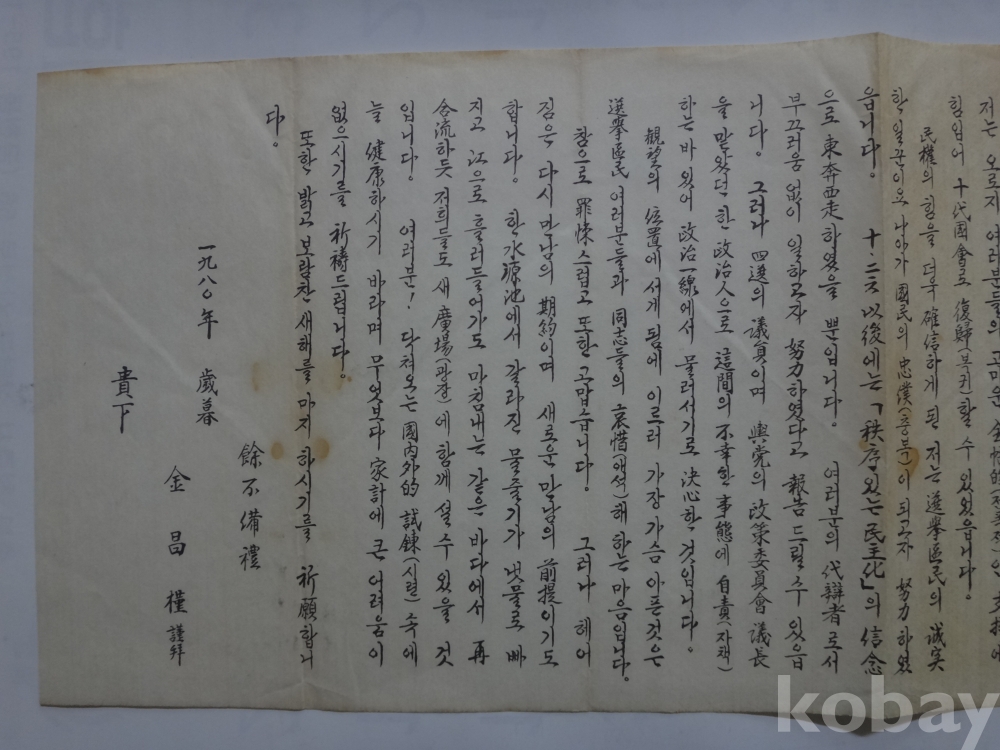 저는 오로지 여러분들의 고마운
힘입어 十代國會로 復歸(복귀)할 수 있었읍니다.
民權의 힘을 더욱 確信하게 된 저는 選擧區民의 誠実
한 일꾼이요 나아가 國民의 忠僕(충복)이 되고자 努力하였
읍니다. 十.二六以後에는 「秩序있는 民主化」의 信念
으로 東奔西走하였을 뿐입니다. 여러분의 代辯者로서
부끄러움 없이 일하고자 努力하였다고 報告드릴 수 있읍
니다. 그러나 四選의 議員이며 與党의 政策委員會 議長
을 맡았던 한 政治人으로 這間의 不幸한 事態에 自責(자책)
하는 바 있어 政治一線에서 물러서기로 決心한 것입니다.
觀望의 位置에 서게 됨에 이르러 가장 가슴 아픈것은
選擧區民 여러분들과 同志들의 哀惜(애석)해 하는 마음입니다.
참으로 罪悚스럽고 또한 고맙습니다. 그러나 헤어
짐은 다시 만남의 期約이며 새로운 만남의 前提이기도
합니다. 한 水源池에서 갈라진 물줄기가 냇물로 빠
지고 江으로 흘러들어가도 마침내는 같은 바다에서 再
合流하듯 저희들도 새 廣場(광장)에 함께 설 수 있을 것
입니다. 여러분! 닥쳐오는 國內外的 試鍊(시련) 속에
늘 健康하시기 바라며 무엇보다 家計에 큰 어려움이
없으시기를 祈禱드립니다.
또한 밝고 보람찬 새해를 마지 하시기를 祈願합니
다.
餘不備禮
一九八○年 歲暮
金昌槿 謹拜
貴下
kobay